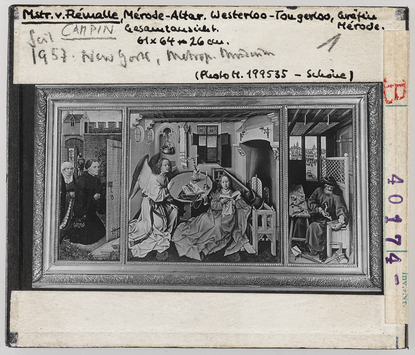 Mstr. v. Flémalle, Mérode-Altar. Westerloo-Tongerloo, Gräfin Mérode.
Gesamtansicht.
61x64 + 26 cm.
CAMPIN
1
Seit 1957. New York, Metrop. Museum
(Photo M. 199535 -
B
40174-